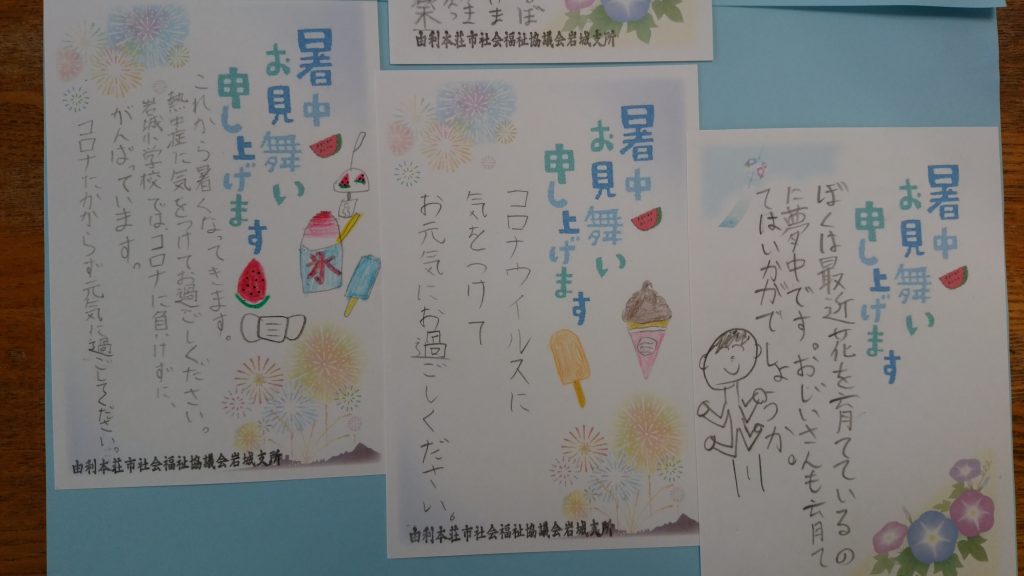 由利本荘市社会福祉協議会岩城支所
暑中
お見舞い
申し上げます
これから暑くなってきます。
熱中症に気をつけてお過ごしください。
岩城小学校ではコロナに負けずに、
がんばっています。
コロナにかからず元気に過ごしてください。
氷
由利本荘市社会福祉協議会岩城支所
暑中
お見舞い
申し上げます
コロナウイルスに
気をつけて
お元気にお過ごしください。
由利本荘市社会福祉協議会岩城支所
暑中
お見舞い
申し上げます
ぼくは最近花を育てているの
に夢中です。おじいさんも育て
てはいかがでしょうか。